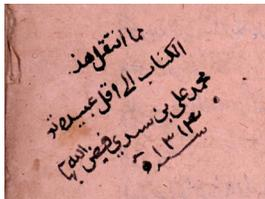 مما انتقل هذ
الكتاب الى اقل عبيده
محمد علي بن سيدي فيض الله
١٣١٣